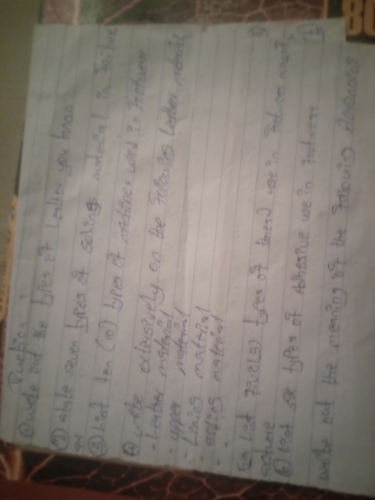 Question 1
① write out the types of Leather you know
② state seven types of soling material in
③ List ten (10) types of machines used in footwear
④ write extensively on the following Leather material
- Leather material
- upper material
- Lining material
- soling material
⑤ List five (5) types of thread use in Footwear
⑥ List six types of Adhesive use in Footwear
write out the meaning of the following
80